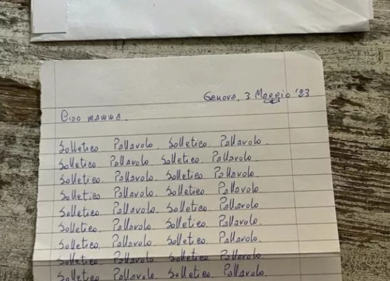 Genova, 3 Maggio '23
Ciao mamma.
Solletico Pallavolo. Solletico Pallavolo.
Solletico Pallavolo. Solletico Pallavolo.
Solletico. Pallavolo. Solletico. Pallavolo.
Solletico. Pallavolo. Solletico. Pallavolo
Solletico. Pallavolo. Solletico. Pallavolo
Solletico. Pallavolo. Solletico. Pallavolo
Solletico. Pallavolo. Solletico. Pallavolo.
Solletico. Pallavolo. Solletico. Pallavolo.